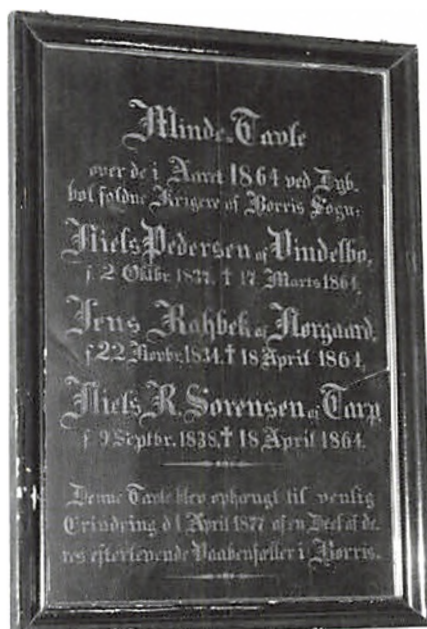 Minde-Tavle
over de i Aaret 1864 ved Dyb-
bøl faldne Krigere af Borris Sogn:
Niels Pedersen af Vindelbo,
f. 2 Oktbr. 1837. † 17. Marts 1864.
Jens Rahbek af Nørgaard,
f. 22 Novbr. 1834. † 18 April 1864.
Niels R. Sørensen af Tarp,
f. 9 Septbr. 1838. † 18 April 1864.
Denne Tavle blev ophængt til venlig
Erindring d. 1 April 1877 af en Deel af de-
res efterlevende Vaabenfæller i Borris.